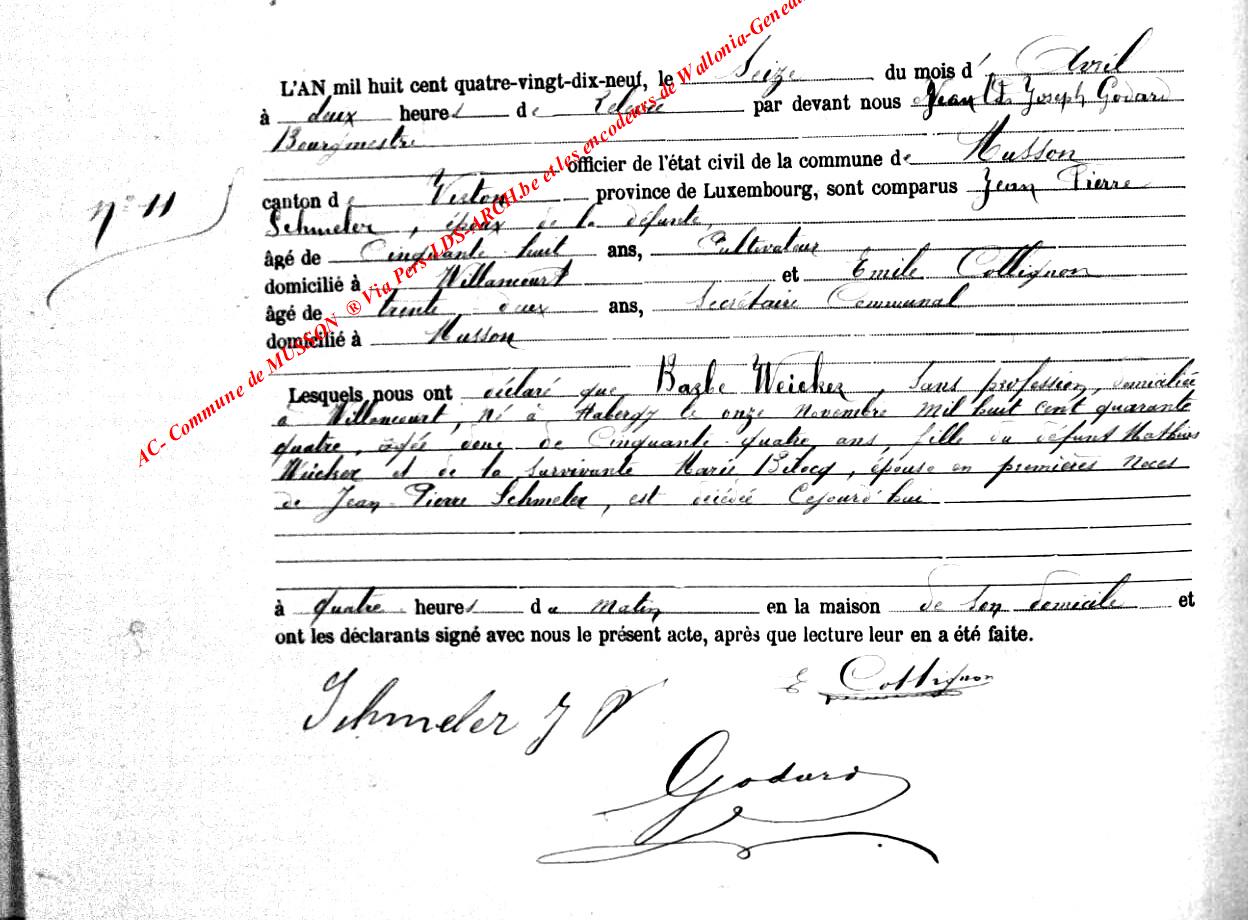 AC- Commune de MUSSON ® Via Pers-LDS-ARCH.be et les encodeurs de Wallonia-Genea
L'AN mil huit cent quatre-vingt-dix-neuf, le Seize du mois d' Avril
à deux heures de Relevée par devant nous Jean Bte Joseph Godard
Bourgmestre
officier de l'état civil de la commune de Musson
nº 11
canton de Virton province de Luxembourg, sont comparus Jean Pierre
Schmeler, époux de la défunte,
âgé de Cinquante huit ans, Cultivateur
domicilié à Willancourt et Emile Collignon
âgé de trente deux ans, Secrétaire Communal
domicilié à Musson
Lesquels nous ont déclaré que Barbe Weicker, Sans profession, domiciliée
à Willancourt, Né à Habergy le onze Novembre mil huit cent quarante
quatre, agée donc de Cinquante-quatre ans, fille du défunt Mathias
Weicker et de la Survivante Marie, épouse en premières Noces
de Jean-Pierre Schmeler, est décédée Cejourd'hui
à quatre heures du matin en la maison de Son domicile et
ont les déclarants signé avec nous le présent acte, après que lecture leur en a été faite.
E Collignon
Schmeler J P
Godard